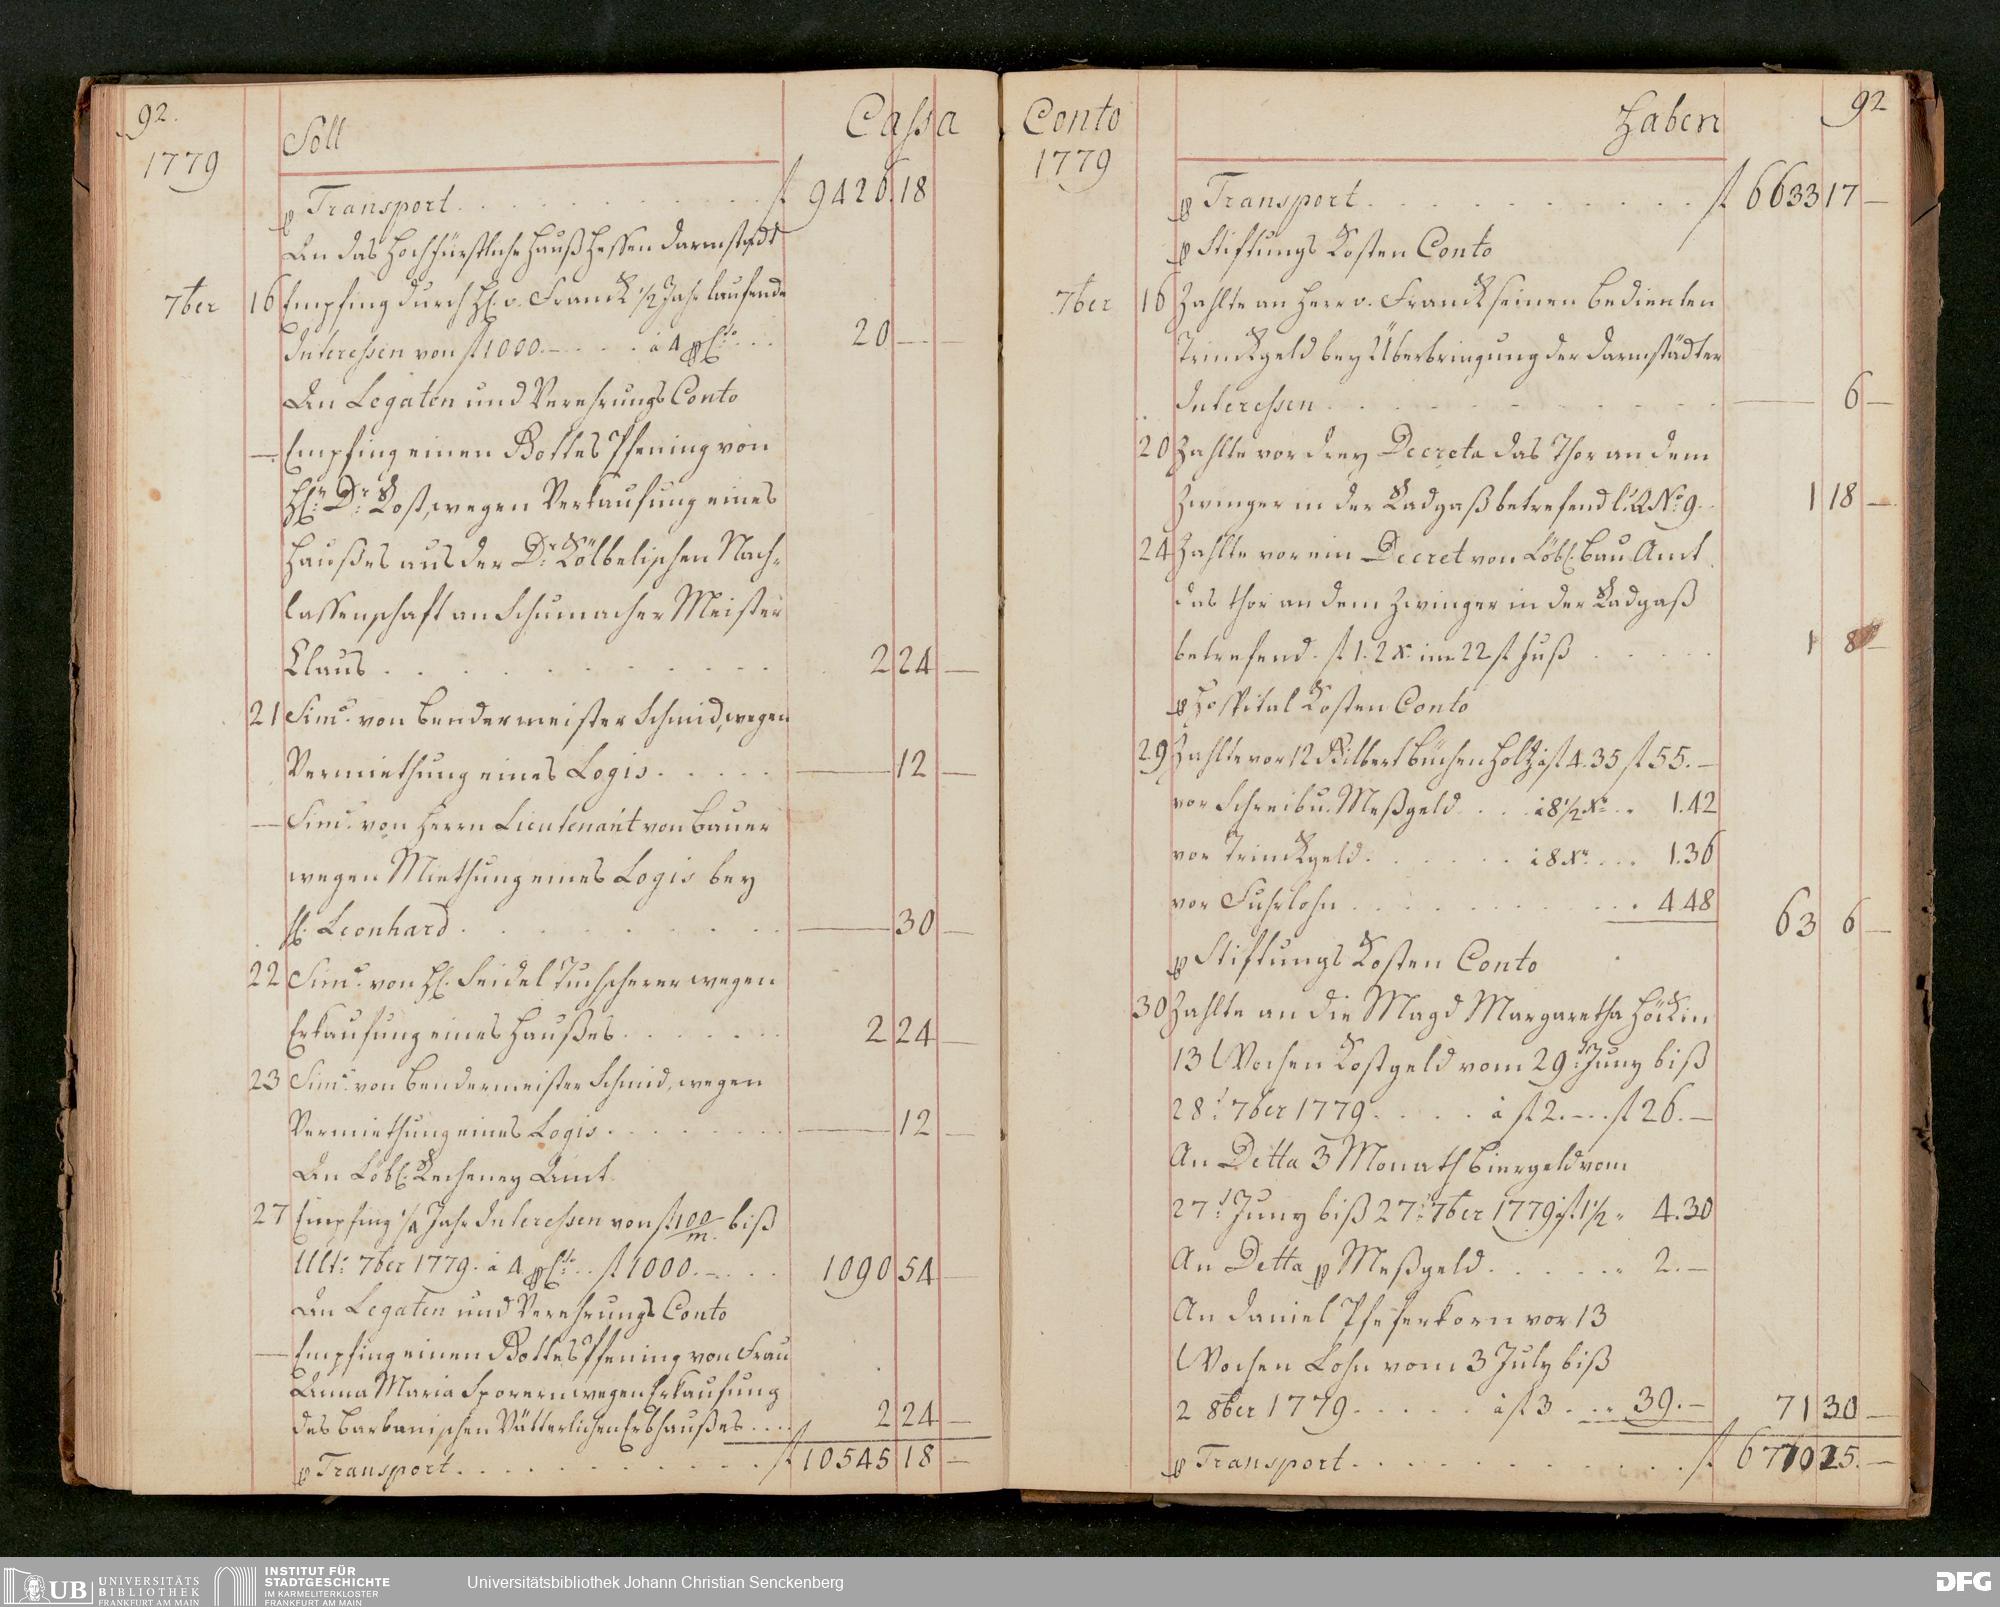 92.
Soll
Cassa
1779
p Transport . . . . . . . . . . . f 9426 18
An das Hochfürstliche Hauß Hessen Darmstadt
7ber 16 Empfing durch H. v. Franck 1/2 Jahr laufende
Interessen von f 1000.– . . . à 4 p Cto. . . 20 – –
An Legaten und Verehrungs Conto
— Empfing einen Gottes Pfening von
Hn. Dr. Kost, wegen Verkaufung eines
Haußes aus der Dr. Kölbelischen Nach-
lassenschaft an Schumacher Meister
Claus . . . . . . . . . . 2 24 —
21 Simil. von Bendermeister Schmid, wegen
Vermiethung eines Logis . . . . . — 12 —
— Simil. von Herrn Lieutenant von Bauer
wegen Miethung eines Logis bey
H. Leonhard . . . . . . . . . — 30 —
22 Simil. von H. Seidel Tuchscherer wegen
Erkaufung eines Haußes . . . . . . 2 24 —
23 Simil. von Bendermeister Schmid, wegen
Vermiethung eines Logis . . . . . . . — 12 —
An Löbl. Recheney Amt
27 Empfing 1/4 Jahr Interessen von f 100/m. biß
Ult: 7ber 1779. à 4 p Cto. . f 1000.– . . . 1090 54 —
An Legaten und Verehrungs Conto
— Empfing einen Gottes Pfening von Frau
Anna Maria Sporern wegen Erkaufung
des Barbanischen Vätterlichen Erbhaußes . . . . 2 24 —
p Transport . . . . . . . . . . . f 10545 18 —
Conto
Haben
92
1779
p Transport . . . . . . . . . . . f 6633 17 —
p Stiftungs Kosten Conto
7ber 16 Zahlte an Herr v. Franck seinen Bedienten
Trinckgeld bey Überbringung der Darmstädter
Interessen . . . . . . . . . . . . — 6 —
20 Zahlte vor drey Decreta das Thor an dem
Zwinger in der Radgaß betrefend l. Q No. 9. . 1 18 —
24 Zahlte vor ein Decret von Löbl. Bau Amt
das Thor an dem Zwinger in der Radgaß
betrefend. f 1. 2 X. im 22 f Fuß . . . . . 1 8 —
p Hospital Kosten Conto
29 Zahlte vor 12 Gilbert Büchen Holz à f 4.35 f 55.–
vor Schreib u. Meßgeld . . . à 8 1/2 Xr. . . 1.42
vor Trinckgeld . . . . . . à 8 Xr. . . . 1.36
vor Fuhrlohn . . . . . . . . . . . 4.48 63 6 —
p Stiftungs Kosten Conto
30 Zahlte an die Magd Margaretha Höckin
13 Wochen Kostgeld vom 29t. Juny biß
28t. 7ber 1779 . . . . à f 2.– . . f 26.–
An Detta 3 Monath Biergeld vom
27t. Juny biß 27t. 7ber 1779 à f 1 1/2 „ 4.30
An Detta p Meßgeld . . . . . „ 2.–
An Daniel Pfeferkorn vor 13
Wochen Lohn vom 3 July biß
2 8ber 1779 . . . . . à f 3 . . „ 39.– 71 30 —
p Transport . . . . . . . . . . . . f 6770 25. —
UB UNIVERSITÄTS
BIBLIOTHEK
FRANKFURT AM MAIN
INSTITUT FÜR
STADTGESCHICHTE
IM KARMELITERKLOSTER
FRANKFURT AM MAIN
Universitätsbibliothek Johann Christian Senckenberg
DFG